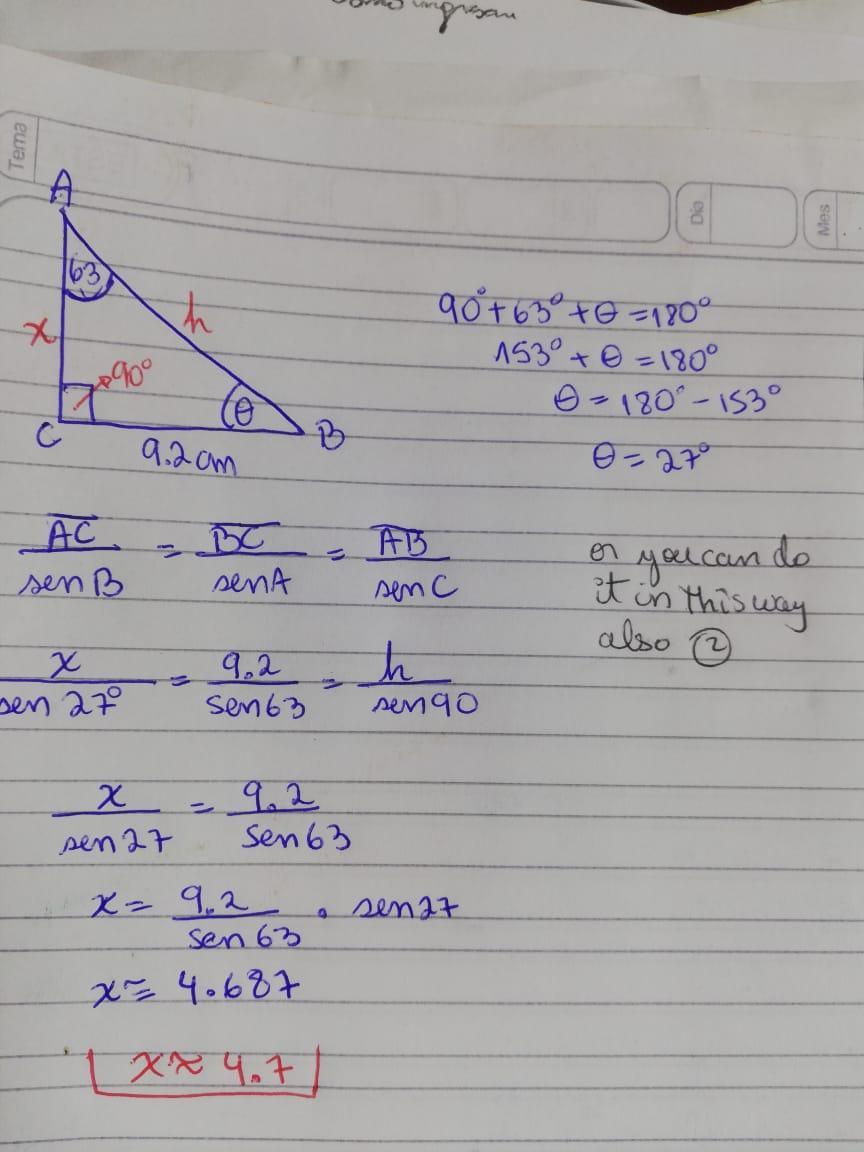 Tema
Dia
Mes
A
63
x
h
90°
θ
C
B
9.2 cm
90° + 63° + θ = 180°
153° + θ = 180°
θ = 180° - 153°
θ = 27°
AC/sen B = BC/sen A = AB/sen C
or you can do
it in this way
also ②
x/sen 27° = 9.2/sen 63 = h/sen 90
x/sen 27 = 9.2/sen 63
x = 9.2/sen 63 · sen 27
x ≈ 4.687
x ≈ 4.7